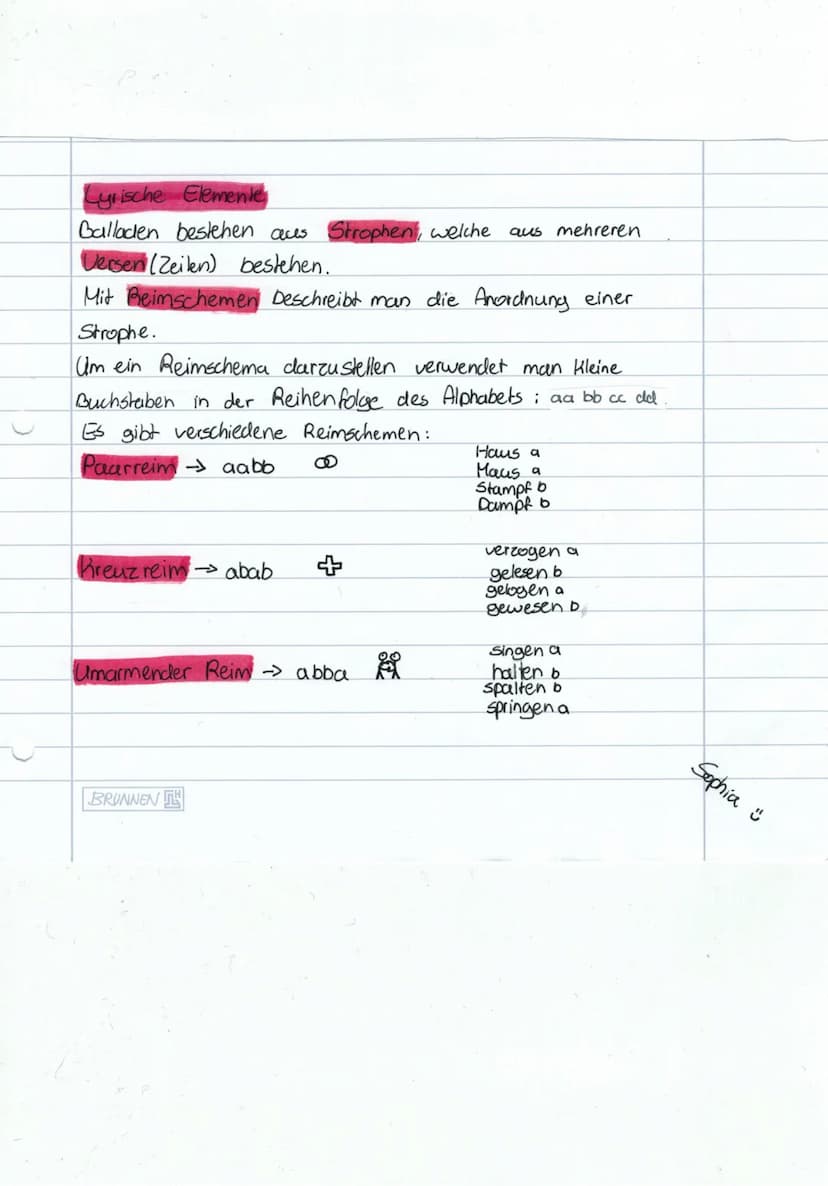 Lyrische Elemente
Balladen bestehen aus Strophen, welche aus mehreren
Versen (Zeilen) bestehen.
Mit Reimschemen beschreibt man die Anordnung einer
Strophe.
Um ein Reimschema darzustellen verwendet man kleine
Buchstaben in der Reihenfolge des Alphabets : aa bb cc dd
Es gibt verschiedene Reimschemen :
Paarreim → aabb
Haus a
Maus a
Stampf b
Dampf b
Kreuzreim → abab
verzogen a
gelesen b
gelogen a
gewesen b
Umarmender Reim → abba
singen a
halten b
spalten b
springen a
Sophia
BRUNNEN